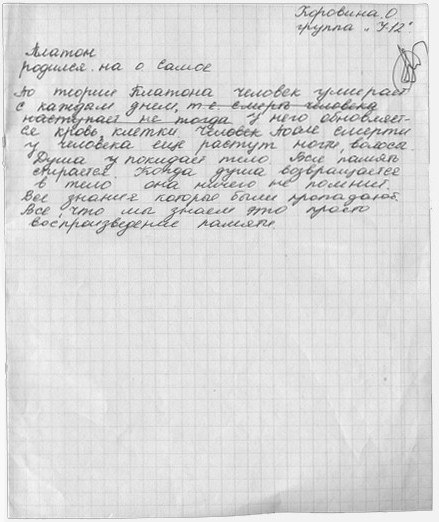 Коровина. О.
группа „У-12"
Платон
родился. на о. самое
По теории Платона человек умирает
с каждам днем, т.е. смерть человека
наступает не тогда у него обновляет-
ся кровь, клетки. Человек после смерти
у человека еще растут ноги, волоса.
Душа у покидает тело. Вся память
стирается. Когда душа возвращается
в тело она ничего не помнит.
Все знания которые были пропадают.
Все, что мы знаем это просто
воспроизведение памяти.